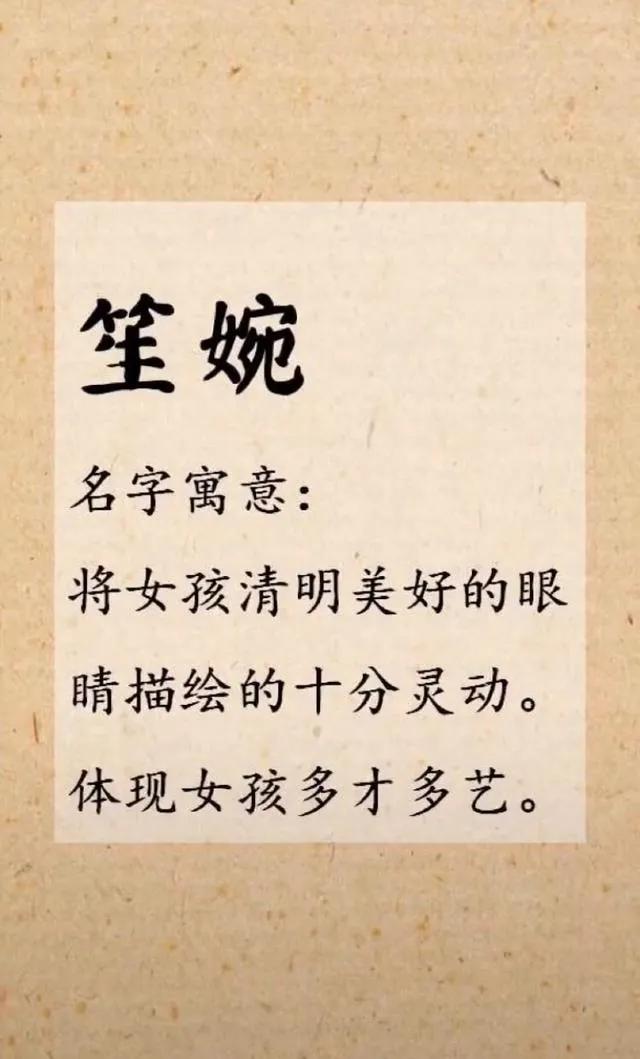 笙婉
名字寓意：
将女孩清明美好的眼
睛描绘的十分灵动。
体现女孩多才多艺。